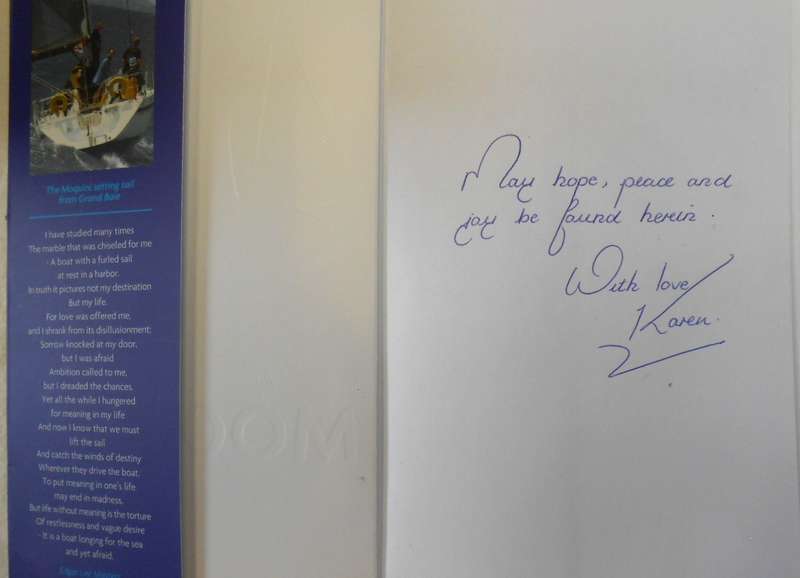 The Moquini setting sail
from Grand Baie
I have studied many times
The marble that was chiseled for me
- A boat with a furled sail
at rest in a harbor.
In truth it pictures not my destination
But my life.
For love was offered me,
and I shrank from its disillusionment;
Sorrow knocked at my door,
but I was afraid
Ambition called to me,
but I dreaded the chances.
Yet all the while I hungered
for meaning in my life
And now I know that we must
lift the sail
And catch the winds of destiny
Wherever they drive the boat.
To put meaning in one's life
may end in madness,
But life without meaning is the torture
Of restlessness and vague desire
- It is a boat longing for the sea
and yet afraid.
Edgar Lee Masters
MOQ
May hope, peace and
joy be found herein.
With love
Karen.